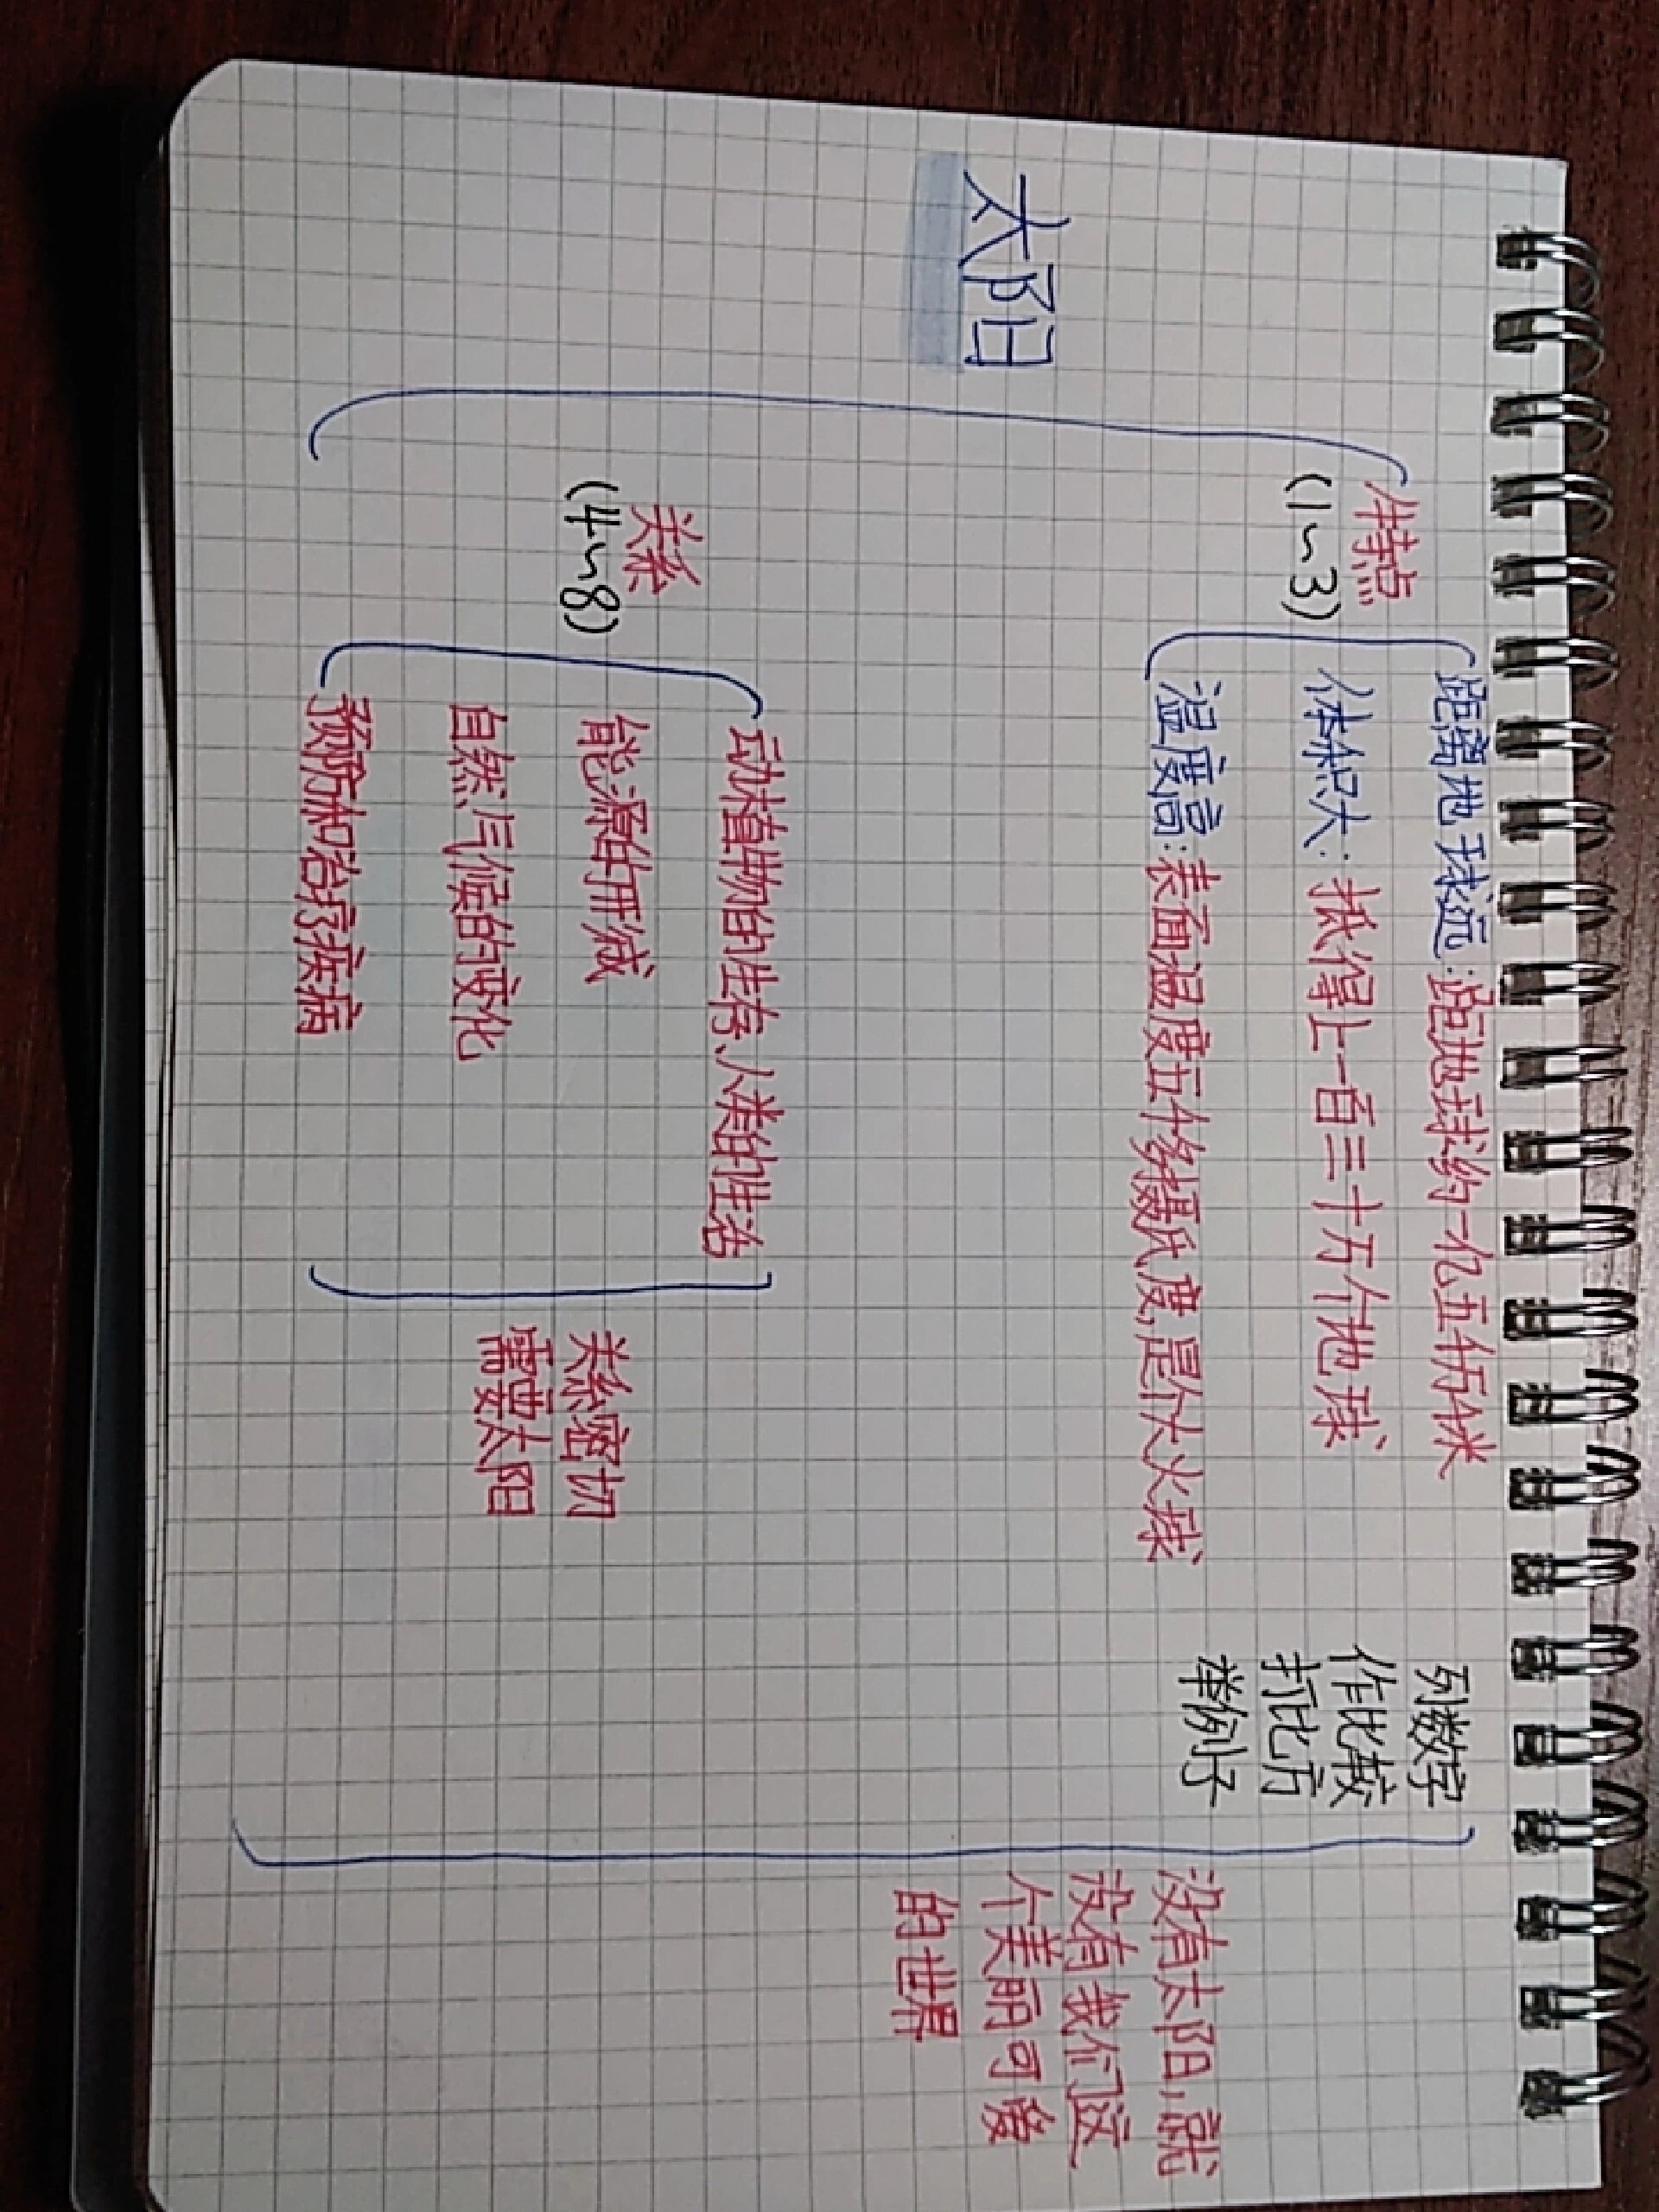 太阳
特点
(1~3)
距离地球远:距地球约一亿五千万千米
体积大:抵得上一百三十万个地球
温度高:表面温度五千多摄氏度,是个大火球
列数字
作比较
打比方
举例子
关系
(4~8)
动植物的生存、人类的生活
能源的形成
自然气候的变化
预防和治疗疾病
关系密切
需要太阳
没有太阳,就
没有我们这
个美丽可爱
的世界